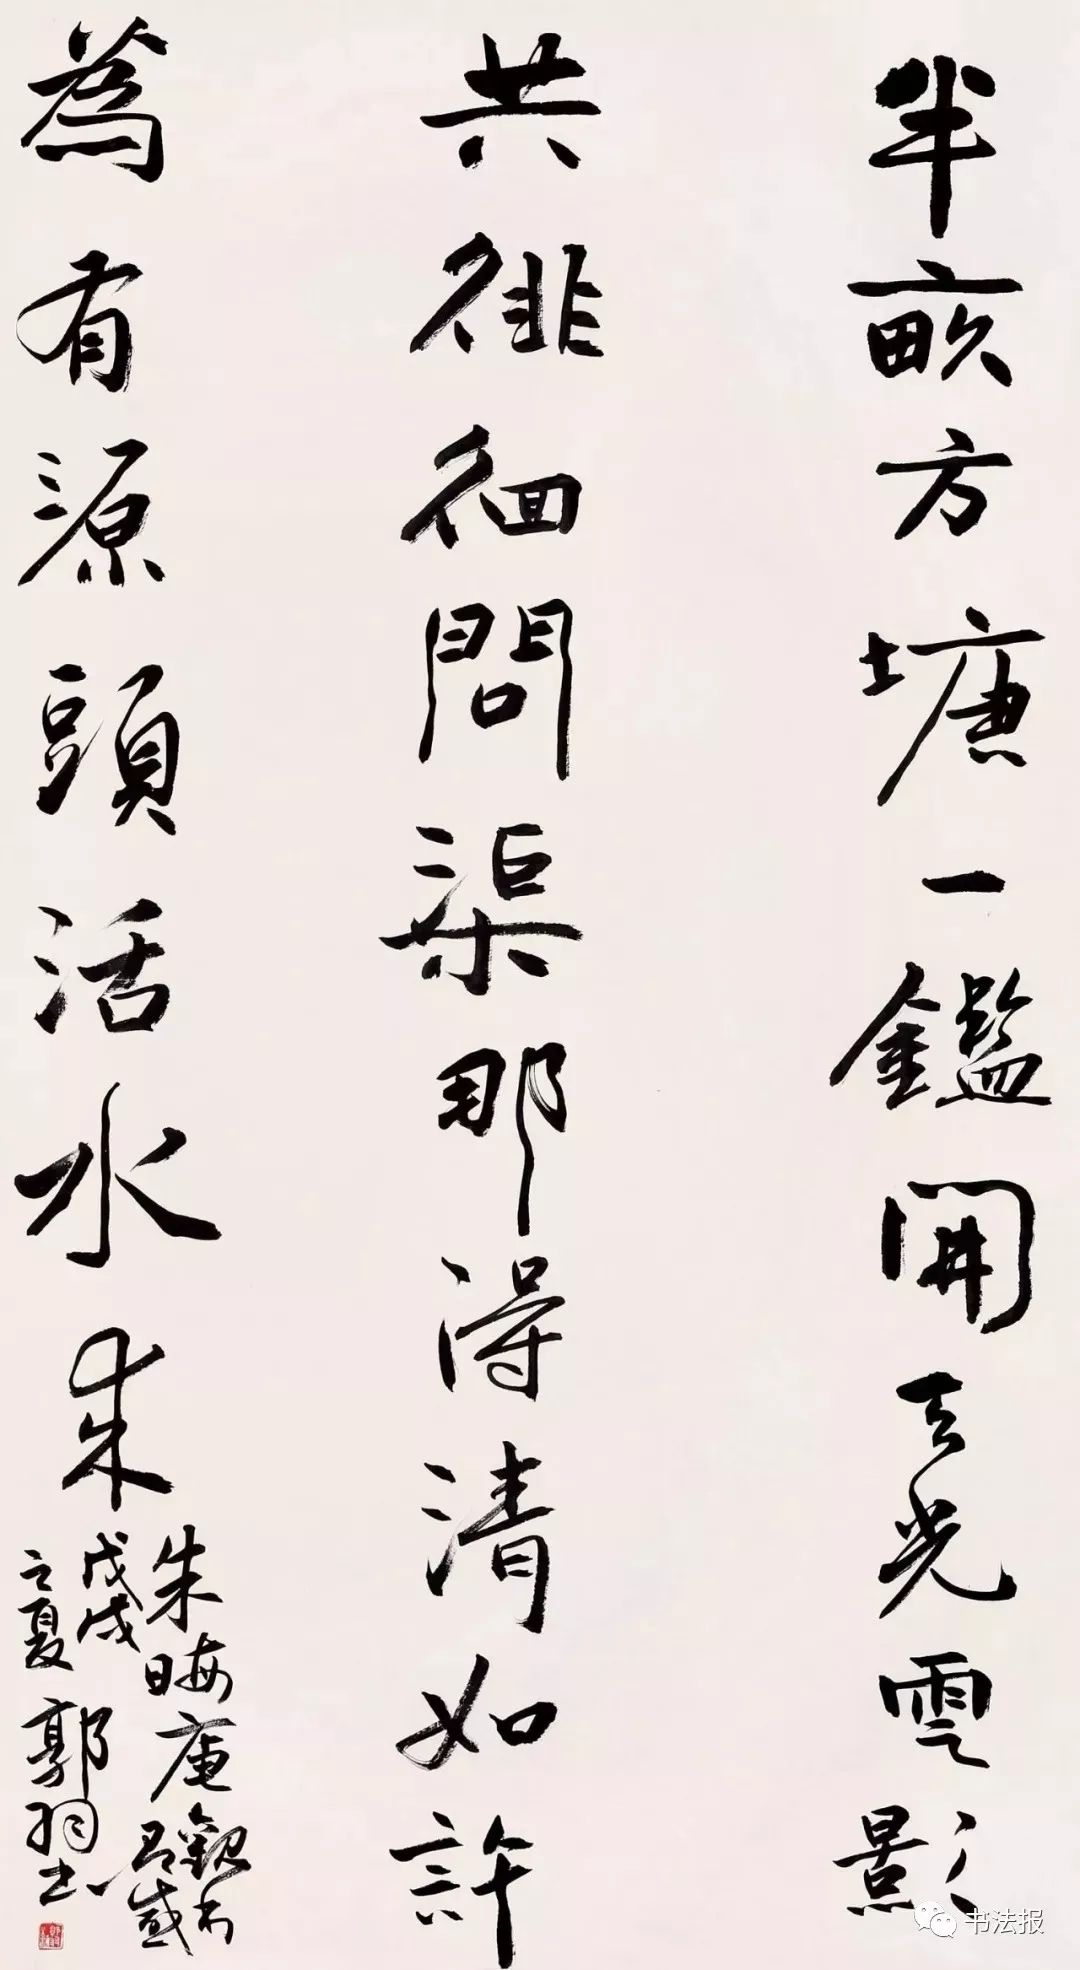 半畝方塘一鑑開天光雲影
共徘徊問渠那得清如許
為有源頭活水来
朱晦庵觀書有感
戊戌
之夏郭羽書
书法报